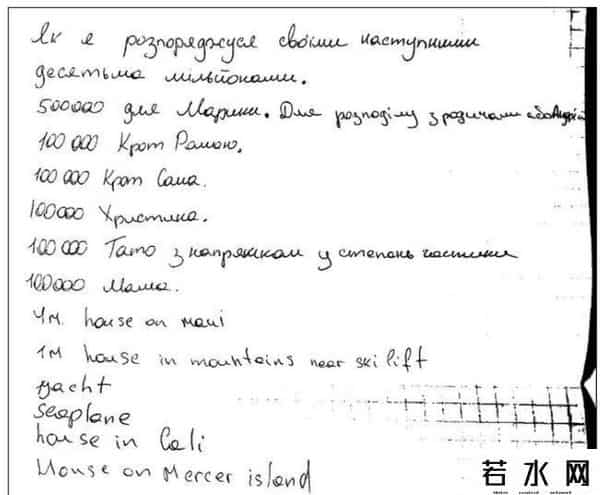 Як я розпоряджуся своїми наступними
десятьма мільйонами.
500000 для Марини. Для розподілу з родичами або
100 000 Крот Рамою.
100 000 Крот Саша.
100000 Христина.
100 000 Тато з напрямком у степень
100000 Мама.
4м. house on maui
1M house in mountains near ski lift
yacht
seaplane
house in Cali
House on Mercer island
若水网